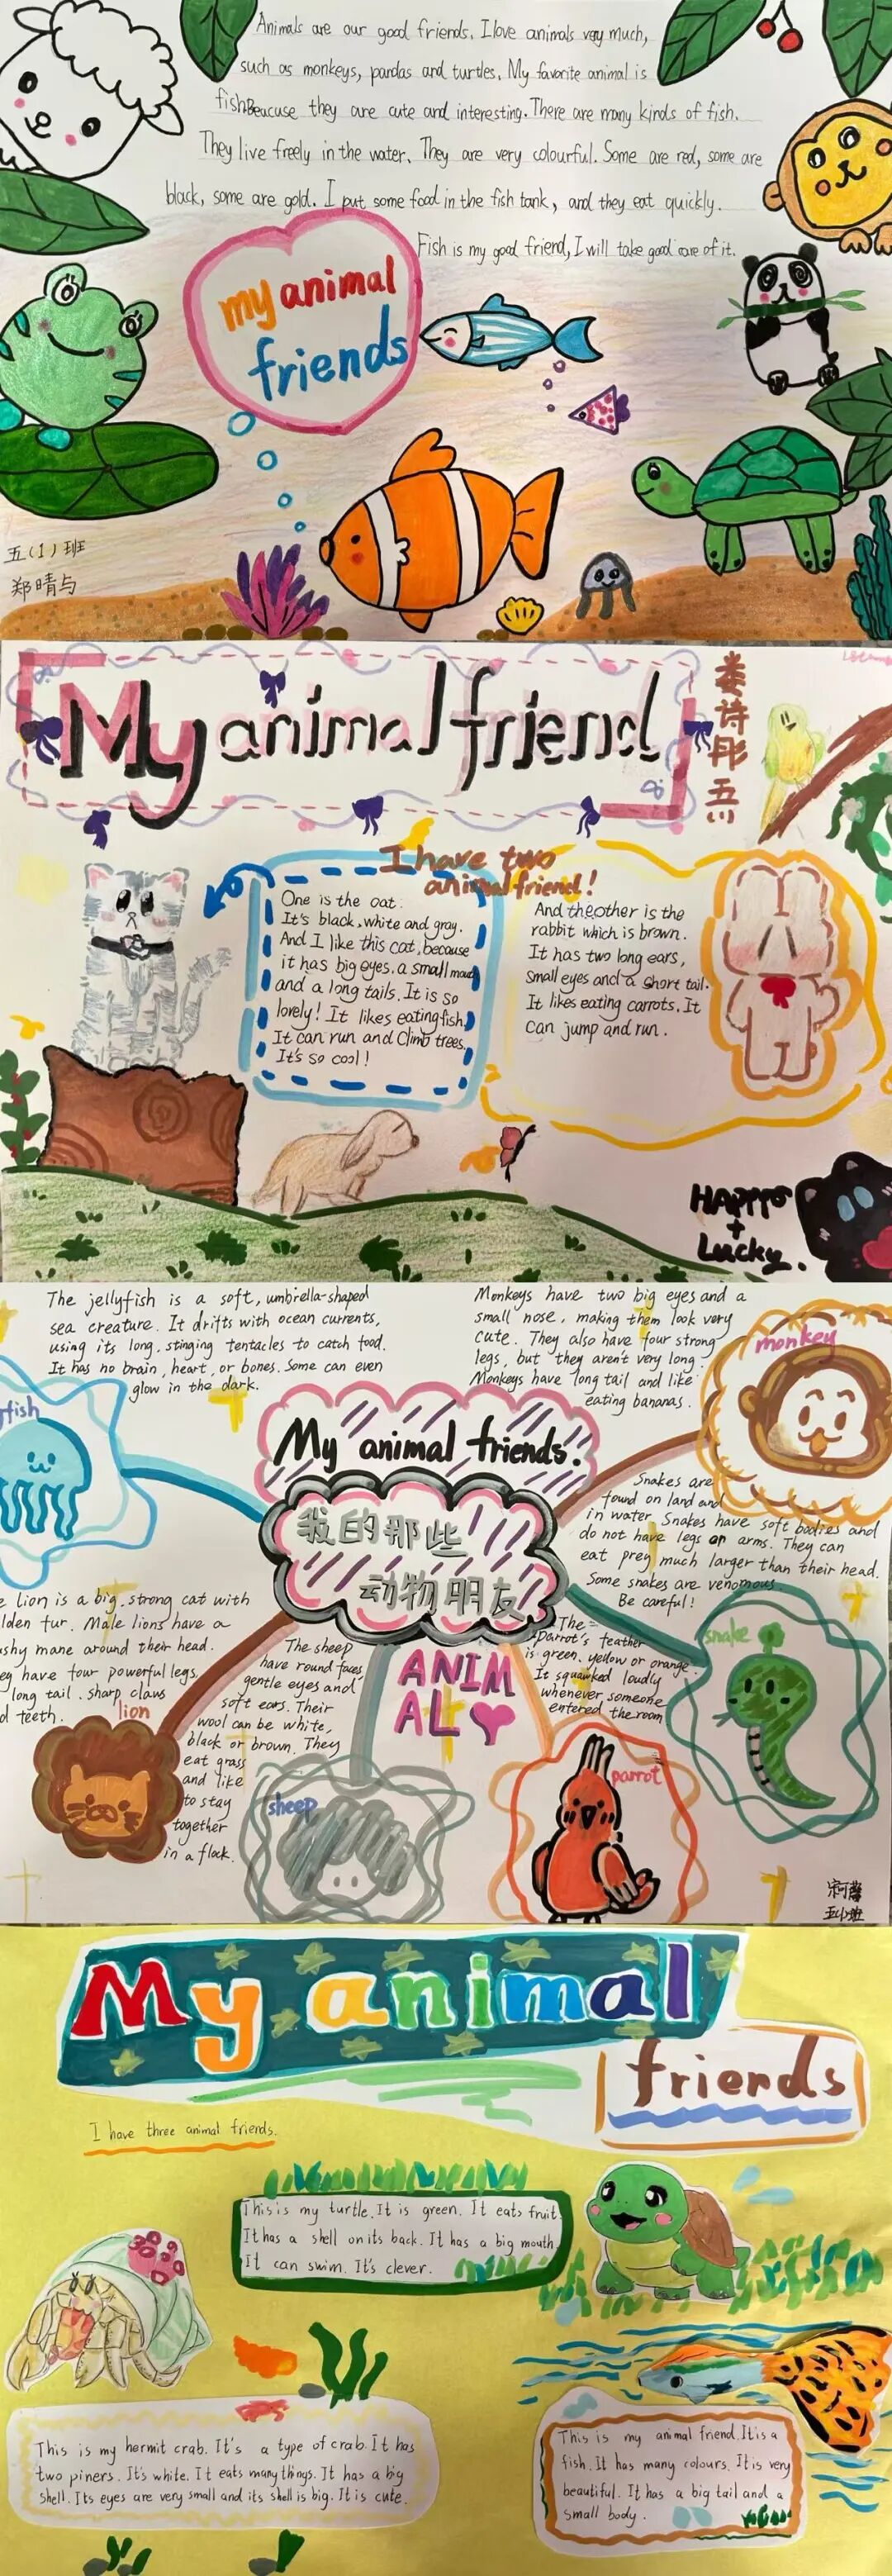 Animals are our good friends. I love animals very much,
such as monkeys, pandas and turtles. My favorite animal is
fish Beacuse they are cute and interesting. There are many kinds of fish.
They live freely in the water. They are very colourful. Some are red, some are
black, some are gold. I put some food in the fish tank, and they eat quickly.
Fish is my good friend, I will take good care of it.
my animal
friends
五(1)班
郑晴与
My animal friend
娄诗彤
I have two
animal friend!
One is the cat.
It's black, white and gray.
And I like this cat, because
it has big eyes, a small
and a long tails. It is so
lovely! It likes eating fish.
It can run and Climb trees.
It's so cool!
And the other is the
rabbit which is brown.
It has two long ears,
small eyes and a short tail.
It likes eating carrots. It
can jump and run.
HAPPY
+
Lucky.
The jellyfish is a soft, umbrella-shaped
sea creature. It drifts with ocean currents,
using its long, stinging tentacles to catch food.
It has no brain, heart, or bones. Some can even
glow in the dark.
fish
Monkeys have two big eyes and a
small nose, making them look very
cute. They also have four strong
legs, but they aren't very long.
Monkeys have long tail and like
eating bananas.
monkey
My animal friends.
我的那些
动物朋友
Snakes are
found on land and
in water Snakes have soft bodies and
do not have legs or arms. They can
eat prey much larger than their head.
Some snakes are venomous.
Be careful!
snake
Lion is a big, strong cat with
lden fur. Male lions have a
shy mane around their head.
ey have four powerful legs,
long tail, sharp claws
d teeth.
lion
The sheep
have round faces,
gentle eyes and
soft ears. Their
wool can be white,
black or brown. They
eat grass
and like
to stay
together
in a flock.
sheep
ANIM
AL
The
parrot's feather
is green, yellow or orange.
It squawked loudly
whenever someone
entered the room
parrot
My animal
friends
I have three animal friends.
This is my turtle. It is green. It eats fruit.
It has a shell on its back. It has a big mouth.
It can swim. It's clever.
This is my hermit crab. It's a type of crab. It has
two piners. It's white. It eats many things. It has a big
shell. Its eyes are very small and its shell is big. It is cute.
This is my animal friend. It is a
fish. It has many colours. It is very
beautiful. It has a big tail and a
small body.